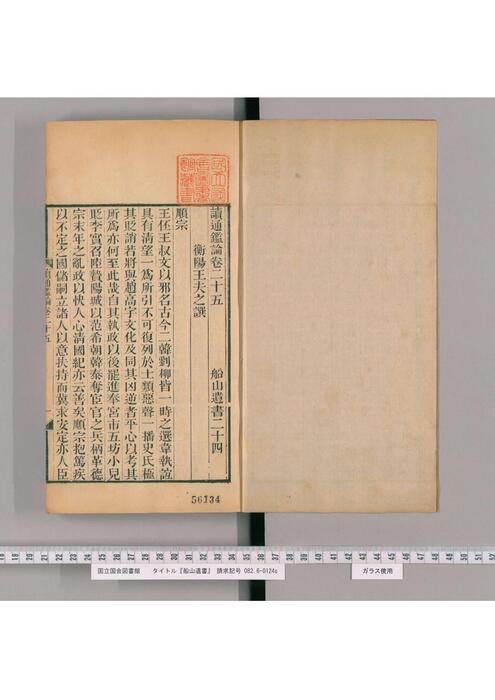 讀通鑑論卷二十五 船山遺書二十四
衡陽王夫之譔
順宗
王伾王叔文以邪名古今二韓劉柳皆一時之選韋執誼
具有清望一爲所引不可復列於士類惡聲一播史氏極
其貶誚若將與趙高宇文化及同其凶逆者平心以考其
所爲亦何至此哉自其執政以後罷進奉宮市五坊小兒
貶李實召陸贄陽城以范希朝韓泰奪宦官之兵柄革德
宗末年之亂政以快人心清國紀亦云善矣順宗抱篤疾
以不定之國儲嗣立諸人以意扶持而冀求安定亦人臣
讀通鑑論卷二十五 一
56134
18 19 20 21 22 23 24 25 26 27 28 29 30 31 32 33 34 35 36 37 38 39 40 41 42 43 44 45 46 47 48 49 50 51 52
国立国会図書館 タイトル『船山遺書』 請求記号 082.6-0124s
ガラス使用